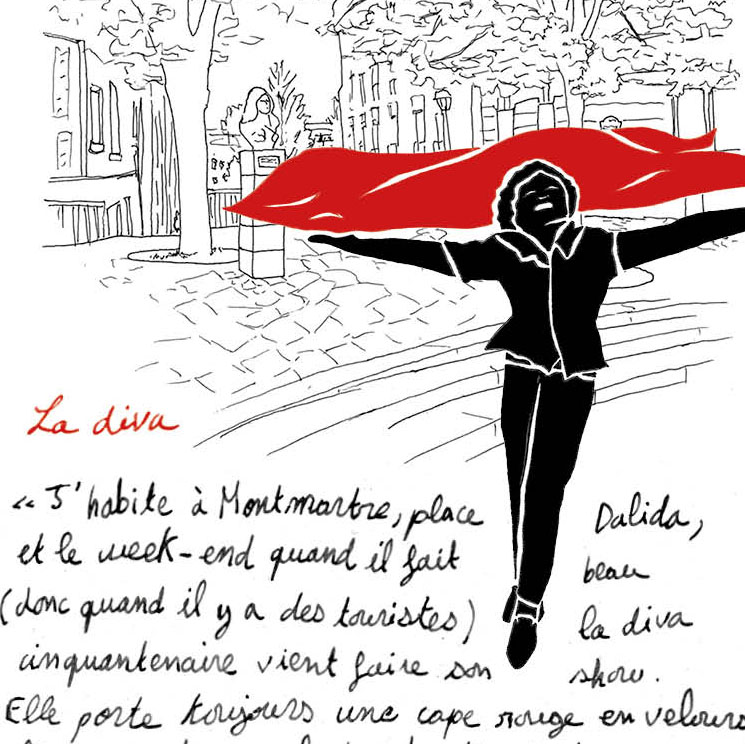 La diva
« J'habite à Montmartre, place Dalida,
et le week-end quand il fait beau
(donc quand il y a des touristes) la diva
cinquantenaire vient faire son show.
Elle porte toujours une cape rouge en velours